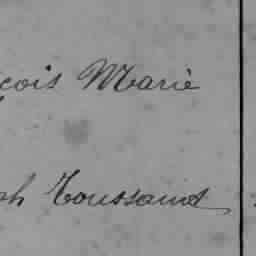 çois Marie
ph Toussaint